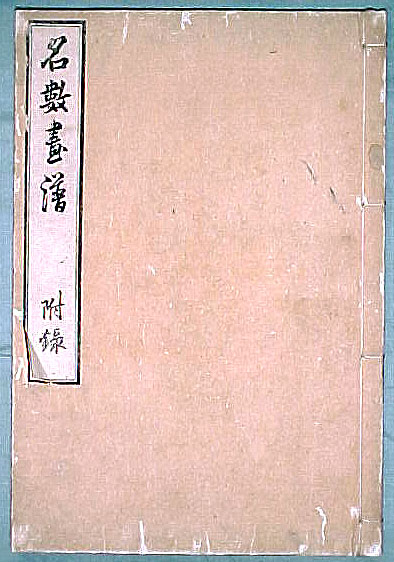 名數畫譜
附錄